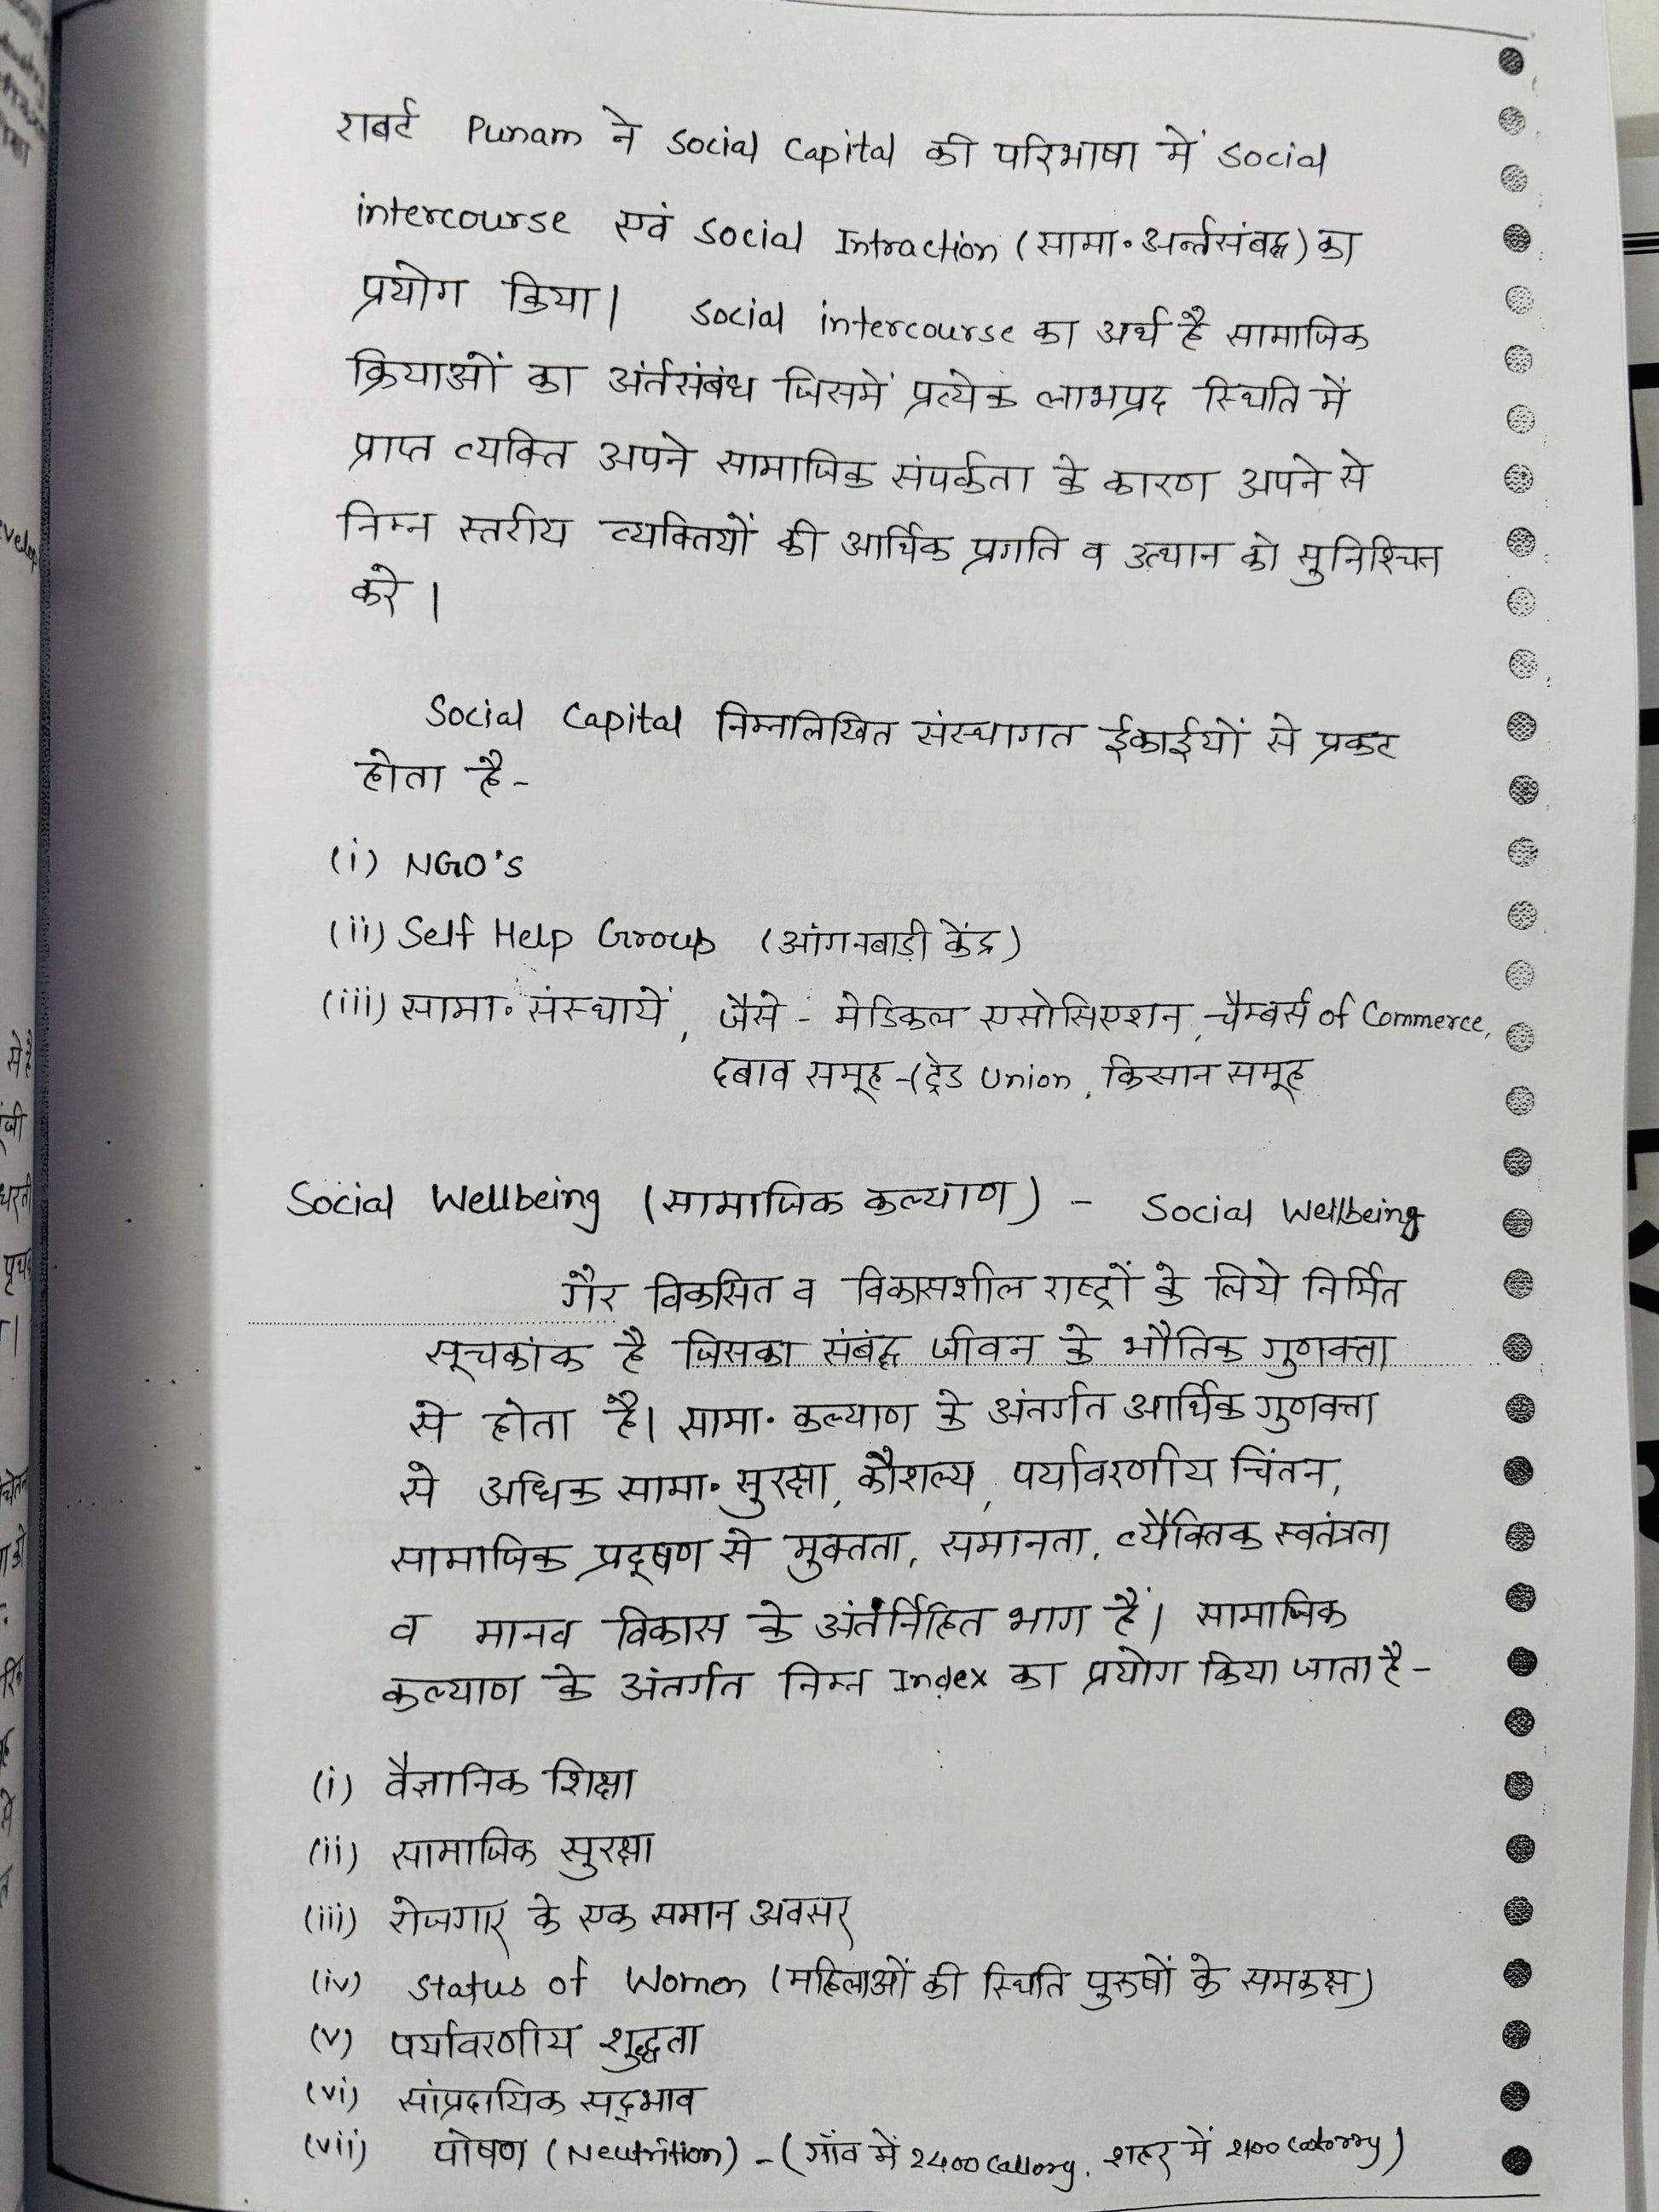 राबर्ट Punam ने Social Capital की परिभाषा में Social
intercourse एवं Social Intraction (सामा॰ अर्न्तसंबद्ध) का
प्रयोग किया। Social intercourse का अर्थ है सामाजिक
क्रियाओं का अंर्तसंबंध जिसमें प्रत्येक लाभप्रद स्थिति में
प्राप्त व्यक्ति अपने सामाजिक संपर्कता के कारण अपने से
निम्न स्तरीय व्यक्तियों की आर्थिक प्रगति व उत्थान को सुनिश्चित
करे।
Social Capital निम्नलिखित संस्थागत ईकाईयों से प्रकट
होता है-
(i) NGO's
(ii) Self Help Group (आंगनबाड़ी केंद्र)
(iii) सामा॰ संस्थायें, जैसे - मेडिकल एसोसिएशन, चैम्बर्स of Commerce,
दबाव समूह-(ट्रेड Union, किसान समूह
Social Wellbeing (सामाजिक कल्याण) - Social Wellbeing
गैर विकसित व विकासशील राष्ट्रों के लिये निर्मित
सूचकांक है जिसका संबंद्ध जीवन के भौतिक गुणवत्ता
से होता है। सामा॰ कल्याण के अंतर्गत आर्थिक गुणवत्ता
से अधिक सामा॰ सुरक्षा, कौशल्य, पर्यावरणीय चिंतन,
सामाजिक प्रदूषण से मुक्तता, समानता, व्यैक्तिक स्वतंत्रता
व मानव विकास के अंतर्निहित भाग हैं। सामाजिक
कल्याण के अंतर्गत निम्न Index का प्रयोग किया जाता है-
(i) वैज्ञानिक शिक्षा
(ii) सामाजिक सुरक्षा
(iii) रोजगार के एक समान अवसर
(iv) Status of Women (महिलाओं की स्थिति पुरुषों के समकक्ष)
(v) पर्यावरणीय शुद्धता
(vi) सांप्रदायिक सद्भाव
(vii) पोषण (Neutrition) - (गाँव में 2400 Callory, शहर में 2100